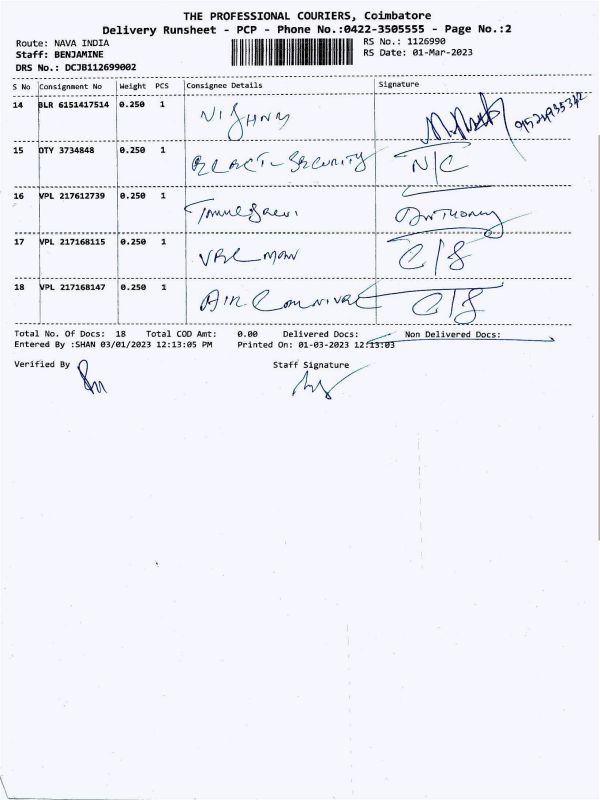 THE PROFESSIONAL COURIERS, Coimbatore
Delivery Runsheet - PCP - Phone No.:0422-3505555 - Page No.:2
Route: NAVA INDIA
Staff: BENJAMINE
DRS No.: DCJB112699002
RS No.: 1126990
RS Date: 01-Mar-2023
S No Consignment No Weight PCS Consignee Details Signature
14 BLR 6151417514 0.250 1
15 DTY 3734848 0.250 1 SECURITY N/C
16 VPL 217612739 0.250 1 Anthony
17 VPL 217168115 0.250 1 C/S
18 VPL 217168147 0.250 1 AIR C/S
Total No. Of Docs: 18 Total COD Amt: 0.00 Delivered Docs: Non Delivered Docs:
Entered By :SHAN 03/01/2023 12:13:05 PM Printed On: 01-03-2023 12:13:03
Verified By Staff Signature